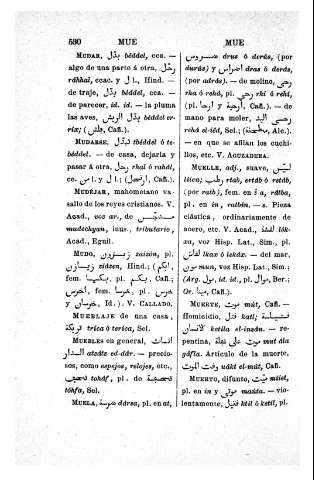 580 MUE
MUE
MUDAR, بدّل béddel, cca. —
algo de una parte á otra, رحّل
ráhhal, ccac. y ل l., Hind. —
de traje, بدّل béddel, cca. —
de parecer, id. id. — la pluma
las aves, بدّل الريش béddel er-
rix; Cañ.).
MUDARSE, تبدّل tbéddel ó te-
béddel. — de casa, dejarla y
pasar á otra, رحل rhal ó rahál,
cc. من y ل l.; Cañ.).
MUDÉJAR, mahometano va-
sallo de los reyes cristianos. V.
Acad., voz ar., de مدجّن
mudechyan, inus. tributario,
Acad., Eguil.
MUDO, زيزون zaizún, pl.
زيازن ziázen, Hind.; (ابكم,
fem. بكما, pl. بكم, Cañ.;
اخرس, fem. خرسا, pl. خرس
y خرسان, Id.). V. CALLADO.
MUEBLAJE DE UNA CASA,
tríca ó teríca, Sel.
MUEBLES en general, اثاث
الدار atsáts ed-dár. — precio-
sos, como espejos, relojes, etc.,
تحف toháf, pl. de تحفة
tóhfa, Sel.
MUELA, ضرسة dársa, pl. en at,
ضروس drus ó derús, (por
durús) y اضراس dras ó derás,
(por adrás). — de molino, رحى
rha ó rehá, pl. رحي rhi ó rehí,
(y ارحية y ارحا pl., Cañ.). — de
mano para moler, رحى اليد
rehá el-íëd, Sel.; Alc.).
— en que se afilan los cuchi-
llos, etc. V. AGUZADERA.
MUELLE, adj., suave, ليّن
léien; رطب rtab, ertáb ó retáb,
(por ratb), fem. en ة a, rátba,
pl. en in, ratbin. — s. Pieza
elástica, ordinariamente de
acero, etc. V. Acad., لقشة lók-
xa, voz Hisp. Lat., Sim., pl.
لقاش lkax ó lekáx. — del mar,
مون mun, voz Hisp. Lat., Sim.;
(Arg. مول, id. id., pl. موال, Ber.;
Or. مينا, Cañ.).
MUERTE, موت máut, Cañ.—
Homicidio, قتل katl; قتيلة
الانسان ketila el-insán. — re-
pentina, موت على غفلة mut ála
gáfla. Artículo de la muerte,
وقت الموت uákt el-mút, Cañ.
MUERTO, difunto, ميّت máiet,
pl. en in y موتى mauta. — vio-
lentamente, قتيل ktil ó ketil, pl.